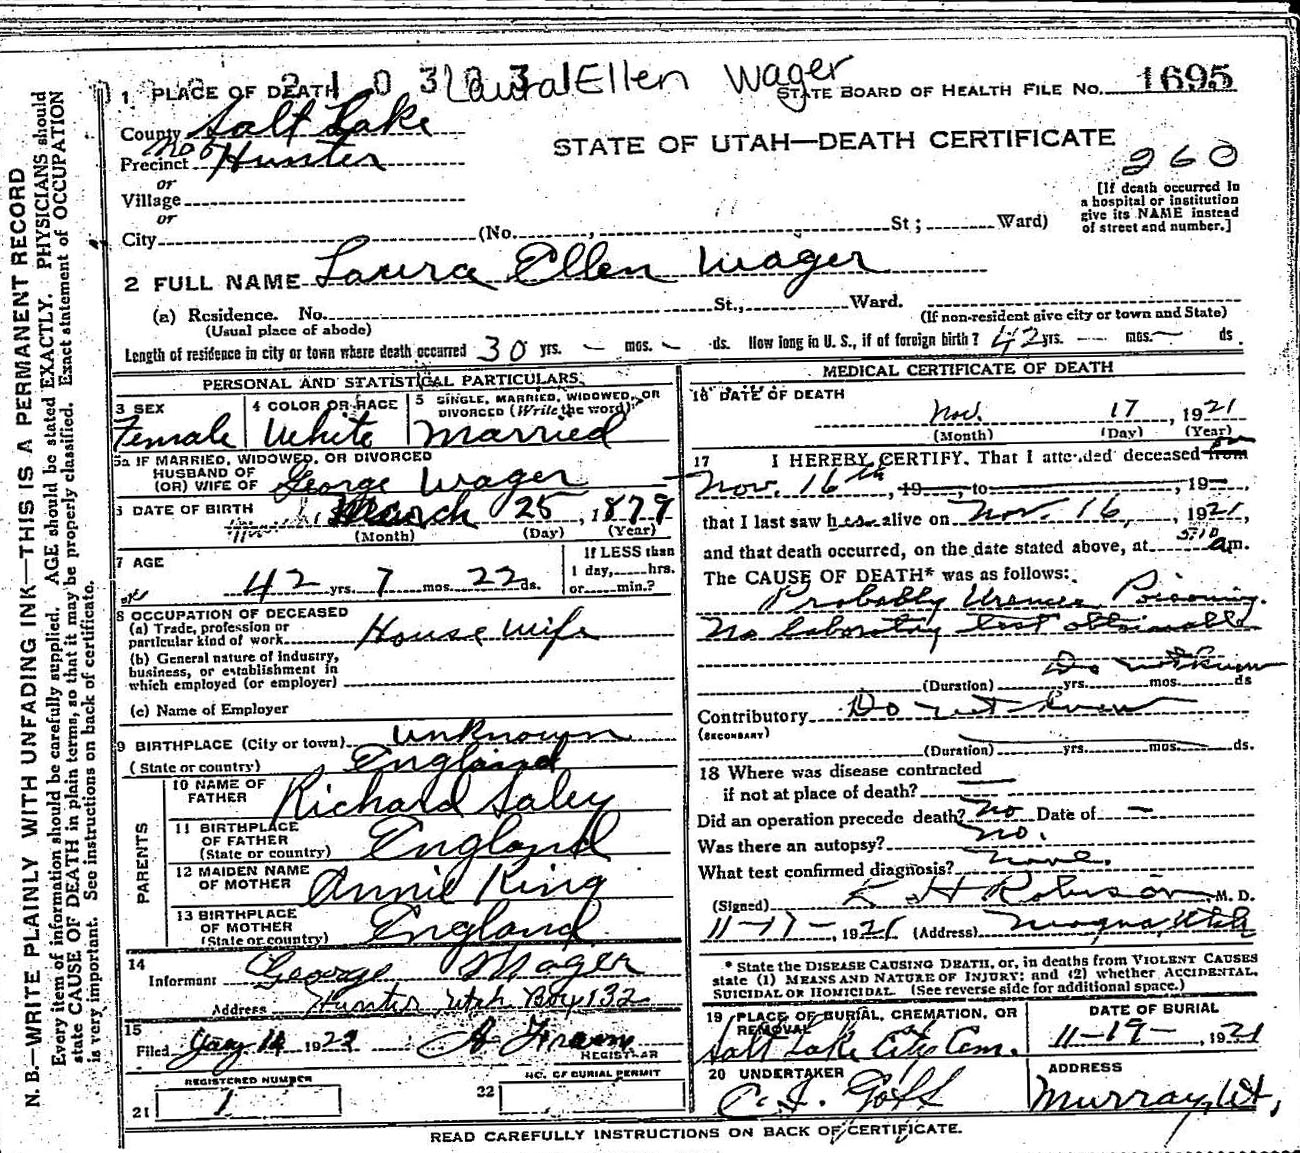 N.B.—WRITE PLAINLY WITH UNFADING INK—THIS IS A PERMANENT RECORD
Every item of information should be carefully supplied. AGE should be stated EXACTLY. PHYSICIANS should
state CAUSE OF DEATH in plain terms, so that it may be properly classified. Exact statement of OCCUPATION
is very important. See instructions on back of certificate.
Ellen Wager
1 PLACE OF DEATH
STATE BOARD OF HEALTH FILE NO. 1695
County Salt Lake
STATE OF UTAH—DEATH CERTIFICATE
Precinct Hunter
260
or
Village
or
City (No. , St; Ward)
[If death occurred in
a hospital or institution
give its NAME instead
of street and number.]
2 FULL NAME Laura Ellen Wager
(a) Residence. No. St., Ward.
(Usual place of abode)
(If non-resident give city or town and State)
Length of residence in city or town where death occurred 30 yrs. — mos. — ds. How long in U. S., if of foreign birth? 42 yrs. — mos. — ds.
PERSONAL AND STATISTICAL PARTICULARS
3 SEX
Female
4 COLOR OR RACE
White
5 SINGLE, MARRIED, WIDOWED, OR
DIVORCED (Write the word)
Married
5a IF MARRIED, WIDOWED, OR DIVORCED
HUSBAND OF
(OR) WIFE OF George Wager
6 DATE OF BIRTH March 25, 1879
(Month) (Day) (Year)
7 AGE
42 yrs. 7 mos. 22 ds.
If LESS than
1 day, hrs.
or min.?
8 OCCUPATION OF DECEASED
(a) Trade, profession or
particular kind of work House Wife
(b) General nature of industry,
business, or establishment in
which employed (or employer)
(c) Name of Employer
9 BIRTHPLACE (City or town) unknown
(State or country) England
PARENTS
10 NAME OF
FATHER Richard Saley
11 BIRTHPLACE
OF FATHER
(State or country) England
12 MAIDEN NAME
OF MOTHER Annie King
13 BIRTHPLACE
OF MOTHER
(State or country) England
14
Informant George Wager
Address Hunter Utah Box 132
15
Filed 192
REGISTRAR
REGISTERED NUMBER
21 1
NO. OF BURIAL PERMIT
22
MEDICAL CERTIFICATE OF DEATH
16 DATE OF DEATH
Nov. 17, 1921
(Month) (Day) (Year)
17 I HEREBY CERTIFY, That I attended deceased from on
Nov. 16th, 19 , to , 19
that I last saw her alive on Nov. 16, 1921,
and that death occurred, on the date stated above, at 5:10 a m.
The CAUSE OF DEATH* was as follows:
Probably Uremic Poisoning.
No laboratory test obtainable
Do not know
(Duration) yrs. mos. ds
Contributory Do not know
(SECONDARY)
(Duration) yrs. mos. ds.
18 Where was disease contracted
if not at place of death?
Did an operation precede death? no Date of —
Was there an autopsy? no.
What test confirmed diagnosis? none.
(Signed) Robinson, M. D.
11-17-, 1921 (Address) Magna, Utah
* State the DISEASE CAUSING DEATH, or, in deaths from VIOLENT CAUSES
state (1) MEANS AND NATURE OF INJURY; and (2) whether ACCIDENTAL,
SUICIDAL OR HOMICIDAL. (See reverse side for additional space.)
19 PLACE OF BURIAL, CREMATION, OR
REMOVAL
Salt Lake City Cem.
DATE OF BURIAL
11-19-, 1921
20 UNDERTAKER
Goff
ADDRESS
Murray, Ut,
READ CAREFULLY INSTRUCTIONS ON BACK OF CERTIFICATE.